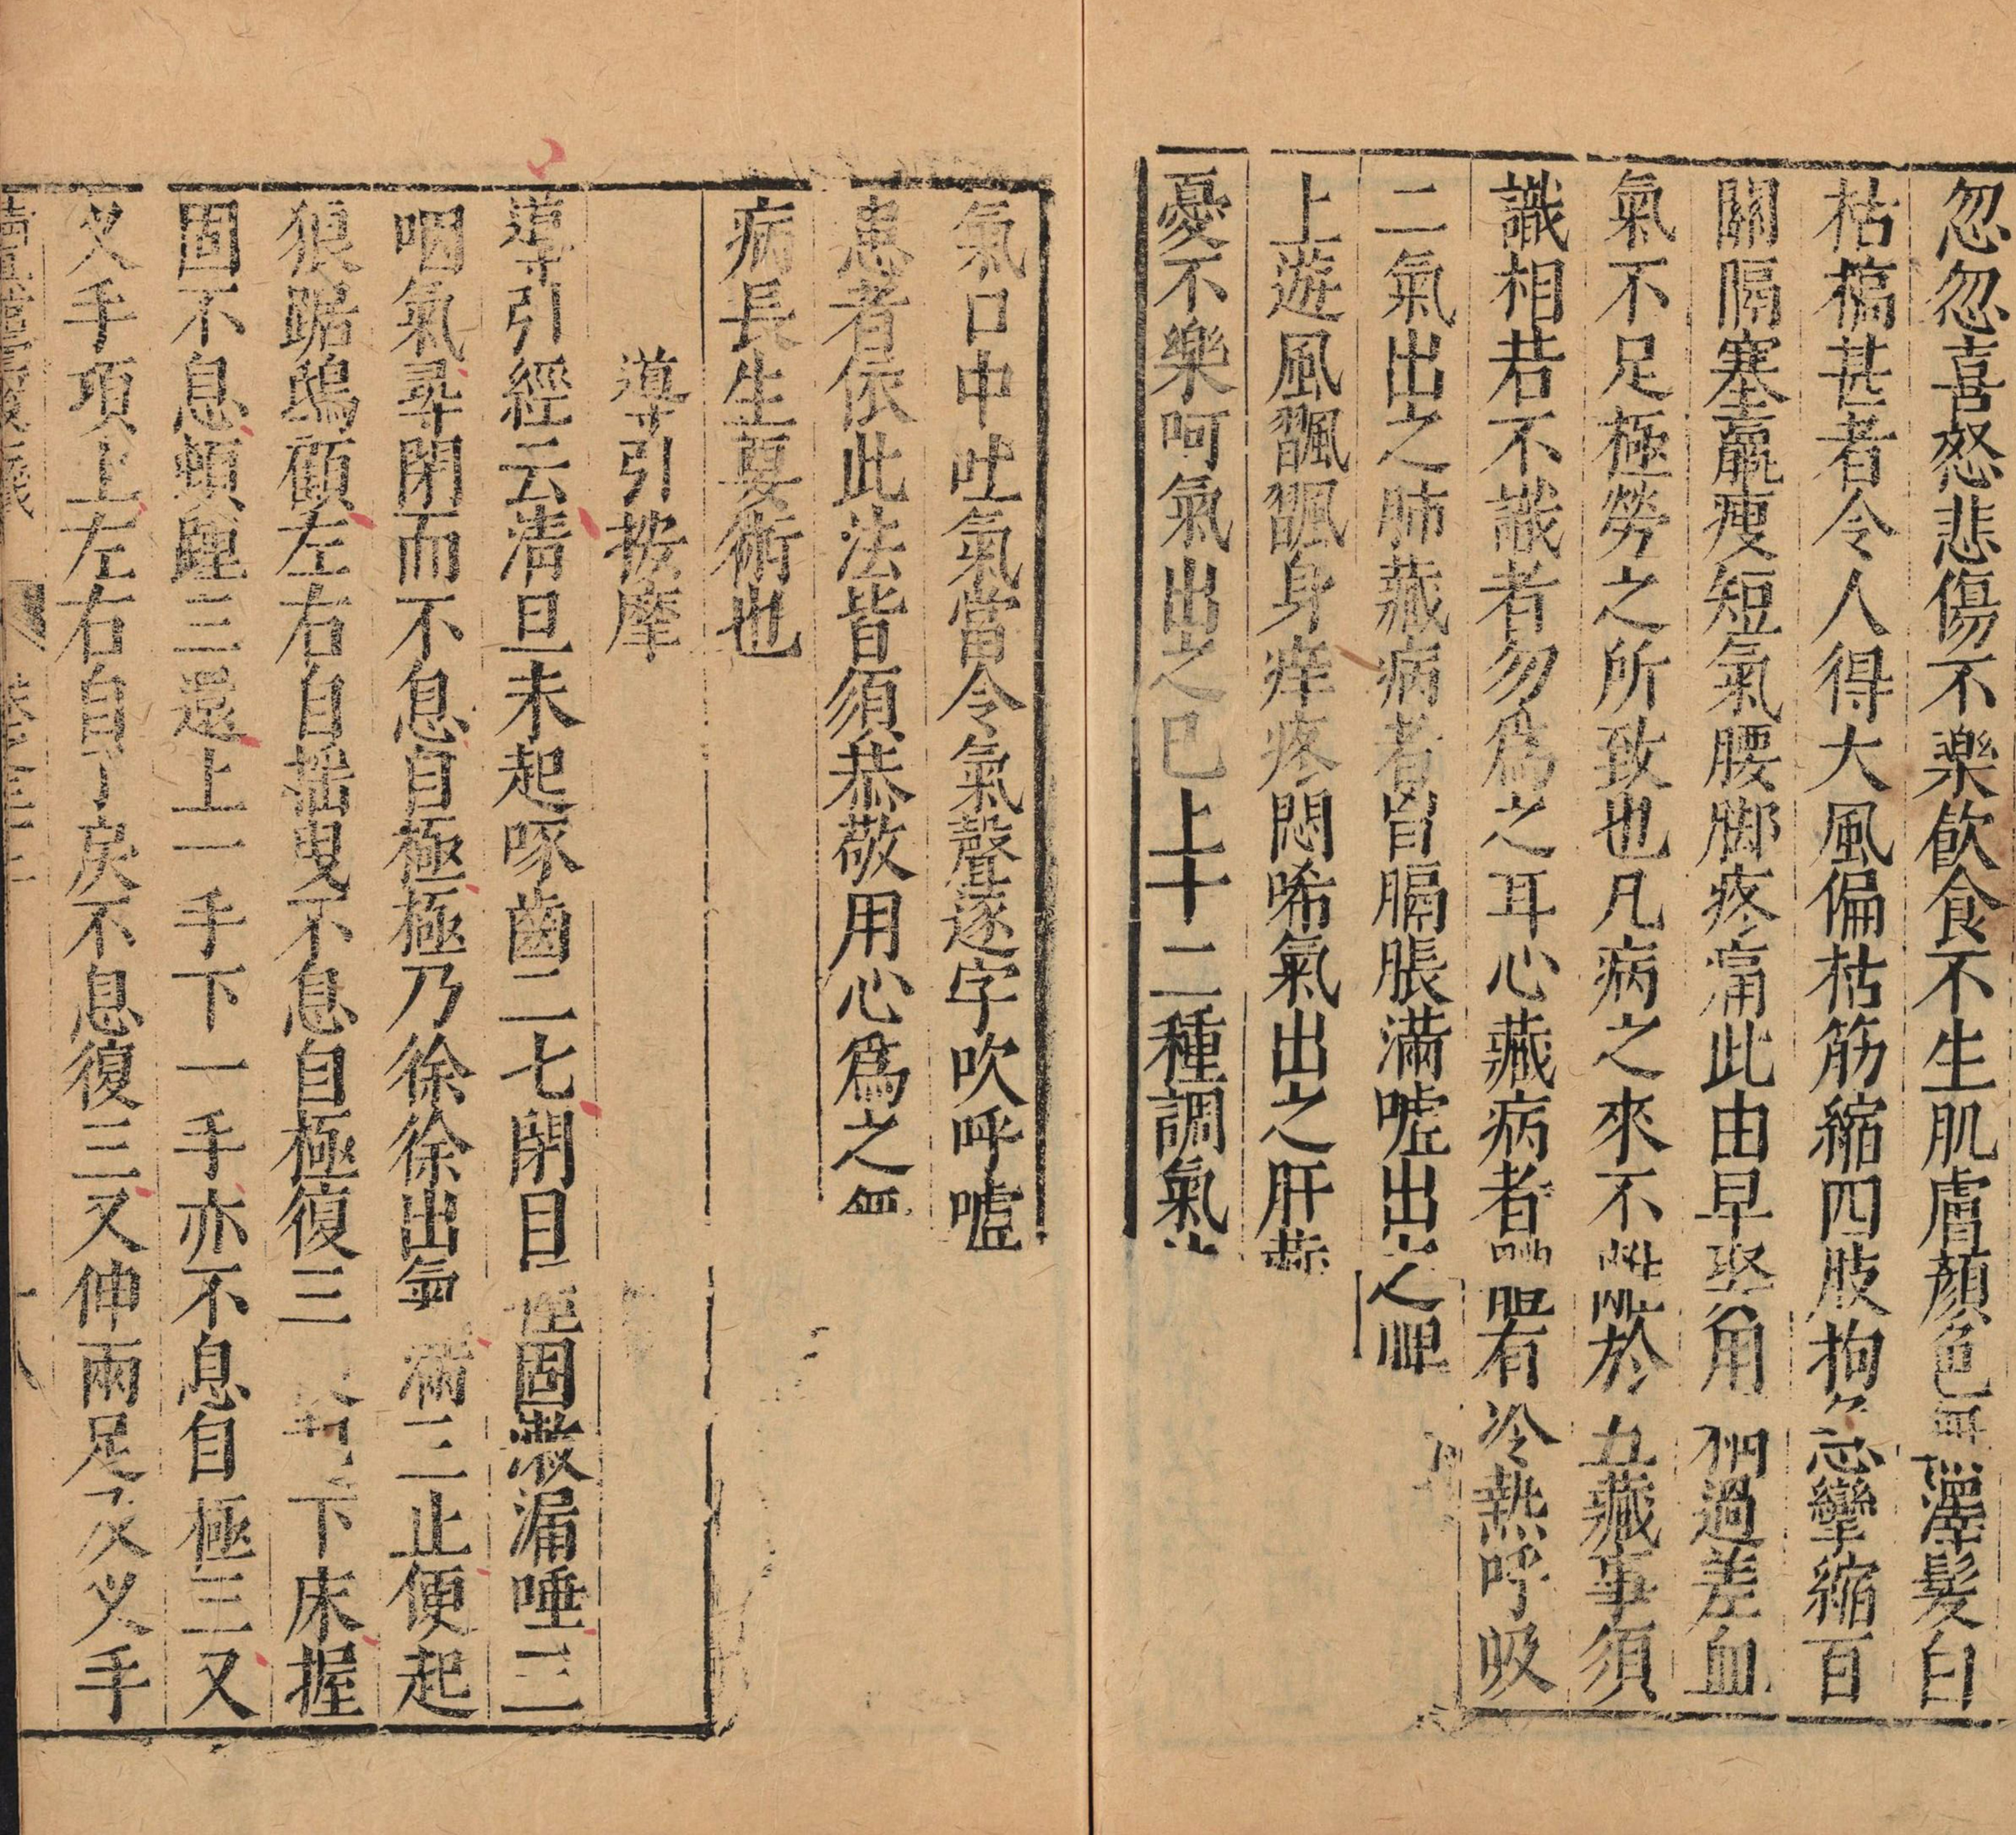 忽忽喜怒悲傷不樂飲食不生肌膚顏色無澤髮白
枯槁甚者令人得大風偏枯筋縮四肢拘急攣縮百
關隔塞羸瘦短氣腰脚疼痛此由早娶用過差血
氣不足極勞之所致也凡病之來不離於五藏事須
識相若不識者勿爲之耳心藏病者體有冷熱呼吸
二氣出之肺藏病者胷膈脹滿噓出之脾
上遊風飄飄身痒疼悶唏氣出之肝藏
憂不樂呵氣出之已上十二種調氣
氣口中吐氣當令氣聲逐字吹呼噓
患者依此法皆須恭敬用心爲之無
病長生要術也
導引按摩
導引經云清旦未起啄齒二七閉目握固漱漏唾三
咽氣尋閉而不息自極極乃徐徐出氣滿三止便起
狼踞鴟顧左右自搖曳不息自極復三 下床握
固不息頓踵三還上一手下一手亦不息自極三又
叉手項上左右自了戾不息復三又伸兩足及叉手